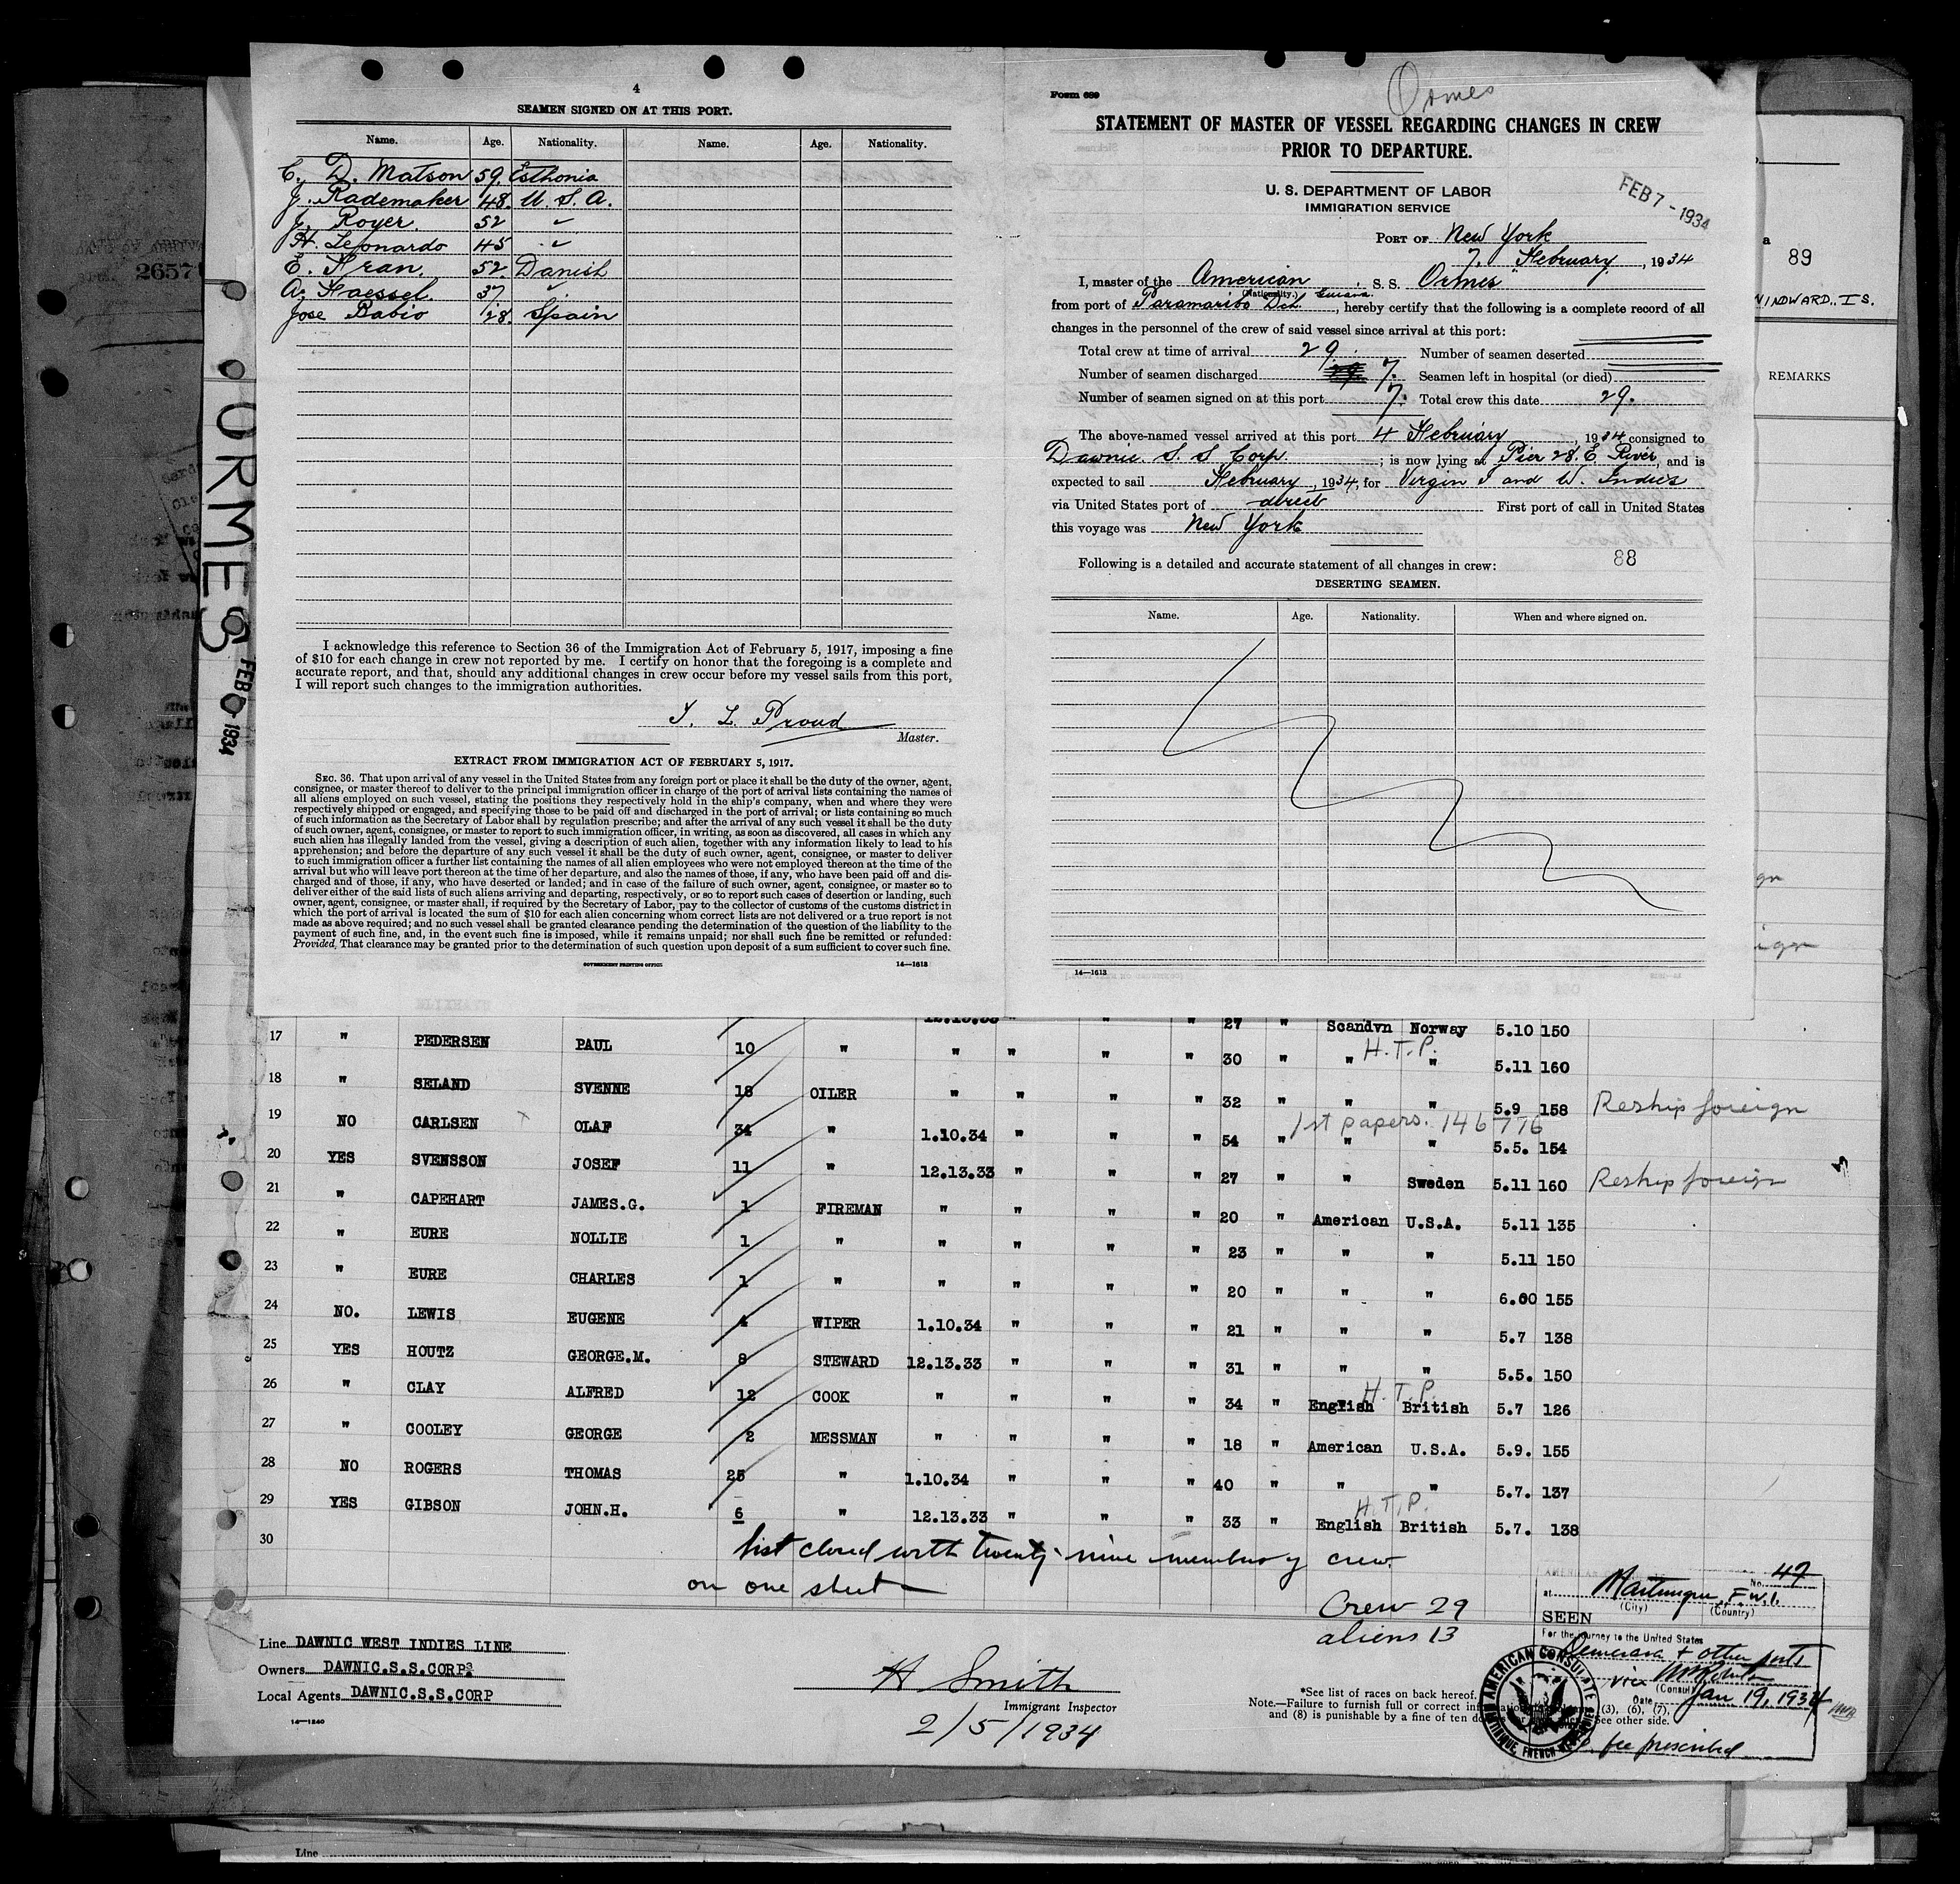 4
SEAMEN SIGNED ON AT THIS PORT.
Name. Age. Nationality. Name. Age. Nationality.
C. D. Matson 59. Esthonia
J. Rademaker 48. U. S. A.
J. Royer. 52 "
H. Leonardo 45 "
E. Kran. 52. Danish
A. Haessel. 37 "
Jose Babio 28. Spain
I acknowledge this reference to Section 36 of the Immigration Act of February 5, 1917, imposing a fine
of $10 for each change in crew not reported by me. I certify on honor that the foregoing is a complete and
accurate report, and that, should any additional changes in crew occur before my vessel sails from this port,
I will report such changes to the immigration authorities.
L. Proud
Master.
EXTRACT FROM IMMIGRATION ACT OF FEBRUARY 5, 1917.
SEC. 36. That upon arrival of any vessel in the United States from any foreign port or place it shall be the duty of the owner, agent,
consignee, or master thereof to deliver to the principal immigration officer in charge of the port of arrival lists containing the names of
all aliens employed on such vessel, stating the positions they respectively hold in the ship's company, when and where they were
respectively shipped or engaged, and specifying those to be paid off and discharged in the port of arrival; or lists containing so much
of such information as the Secretary of Labor shall by regulation prescribe; and after the arrival of any such vessel it shall be the duty
of such owner, agent, consignee, or master to report to such immigration officer, in writing, as soon as discovered, all cases in which any
such alien has illegally landed from the vessel, giving a description of such alien, together with any information likely to lead to his
apprehension; and before the departure of any such vessel it shall be the duty of such owner, agent, consignee, or master to deliver
to such immigration officer a further list containing the names of all alien employees who were not employed thereon at the time of the
arrival but who will leave port thereon at the time of her departure, and also the names of those, if any, who have been paid off and dis-
charged and of those, if any, who have deserted or landed; and in case of the failure of such owner, agent, consignee, or master so to
deliver either of the said lists of such aliens arriving and departing, respectively, or so to report such cases of desertion or landing, such
owner, agent, consignee, or master shall, if required by the Secretary of Labor, pay to the collector of customs of the customs district in
which the port of arrival is located the sum of $10 for each alien concerning whom correct lists are not delivered or a true report is not
made as above required; and no such vessel shall be granted clearance pending the determination of the question of the liability to the
payment of such fine, and, in the event such fine is imposed, while it remains unpaid; nor shall such fine be remitted or refunded:
Provided, That clearance may be granted prior to the determination of such question upon deposit of a sum sufficient to cover such fine.
GOVERNMENT PRINTING OFFICE 14—1613
Form 689
Ormes
STATEMENT OF MASTER OF VESSEL REGARDING CHANGES IN CREW
PRIOR TO DEPARTURE.
U. S. DEPARTMENT OF LABOR
IMMIGRATION SERVICE
FEB 7 - 1934
PORT OF New York
7. February, 1934
I, master of the American S. S. Ormes
(Nationality.)
from port of Paramaribo Dch. Guiana., hereby certify that the following is a complete record of all
changes in the personnel of the crew of said vessel since arrival at this port:
Total crew at time of arrival 29. Number of seamen deserted
Number of seamen discharged 7. Seamen left in hospital (or died)
Number of seamen signed on at this port 7. Total crew this date 29.
The above-named vessel arrived at this port 4 February, 1934 consigned to
Dawnic. S. S. Corp.; is now lying at Pier 28. E River, and is
expected to sail February, 1934, for Virgin I and W. Indies
via United States port of direct First port of call in United States
this voyage was New York
88
Following is a detailed and accurate statement of all changes in crew:
DESERTING SEAMEN.
Name. Age. Nationality. When and where signed on.
14—1613
2657
ORMES
FEB 1934
89
WINDWARD.. IS.
REMARKS
12.13.33 " " " 27 " Scandvn Norway 5.10 150
17 " PEDERSEN PAUL 10 " " " " " 30 " " H.T.P. " 5.11 160
18 " SELAND SVENNE 18 OILER " " " " 32 " " " 5.9 158 Reship foreign
19 NO CARLSEN x OLAF 34 " 1.10.34 " " " 54 " 1st papers. 146776 " " 5.5. 154
20 YES SVENSSON JOSEF 11 " 12.13.33 " " " 27 " " Sweden 5.11 160 Reship foreign
21 " CAPEHART JAMES.G. 1 FIREMAN " " " " 20 " American U.S.A. 5.11 135
22 " EURE NOLLIE 1 " " " " " 23 " " " 5.11 150
23 " EURE CHARLES 1 " " " " " 20 " " " 6.00 155
24 NO. LEWIS EUGENE 4 WIPER 1.10.34 " " " 21 " " " 5.7 138
25 YES HOUTZ GEORGE.M. 8 STEWARD 12.13.33 " " " 31 " " " 5.5. 150
26 " CLAY ALFRED 12 COOK " " " " 34 " English H.T.P. British 5.7 126
27 " COOLEY GEORGE 2 MESSMAN " " " " 18 " American U.S.A. 5.9. 155
28 NO ROGERS THOMAS 25 " 1.10.34 " " " 40 " " " 5.7. 137
29 YES GIBSON JOHN.H. 6 " 12.13.33 " " " 33 " English H.T.P. British 5.7. 138
30
list closed with twenty-nine members of crew
on one sheet
Crew 29
aliens 13
Line DAWNIC WEST INDIES LINE
Owners DAWNIC.S.S.CORP
Local Agents DAWNIC.S.S.CORP
14—1240
H Smith
Immigrant Inspector
2/5/1934
*See list of races on back hereof.
Note.—Failure to furnish full or correct (3), (6), (7),
and (8) is punishable by a fine of ten See other side.
No. 42
at Martinique, F.W.I.
(City) (Country)
SEEN
For the journey to the United States
Demerara + other ports
(Consul)
Date Jan 19, 1934
fee prescribed
AMERICAN CONSULATE
MARTINIQUE, FRENCH WEST INDIES
Line